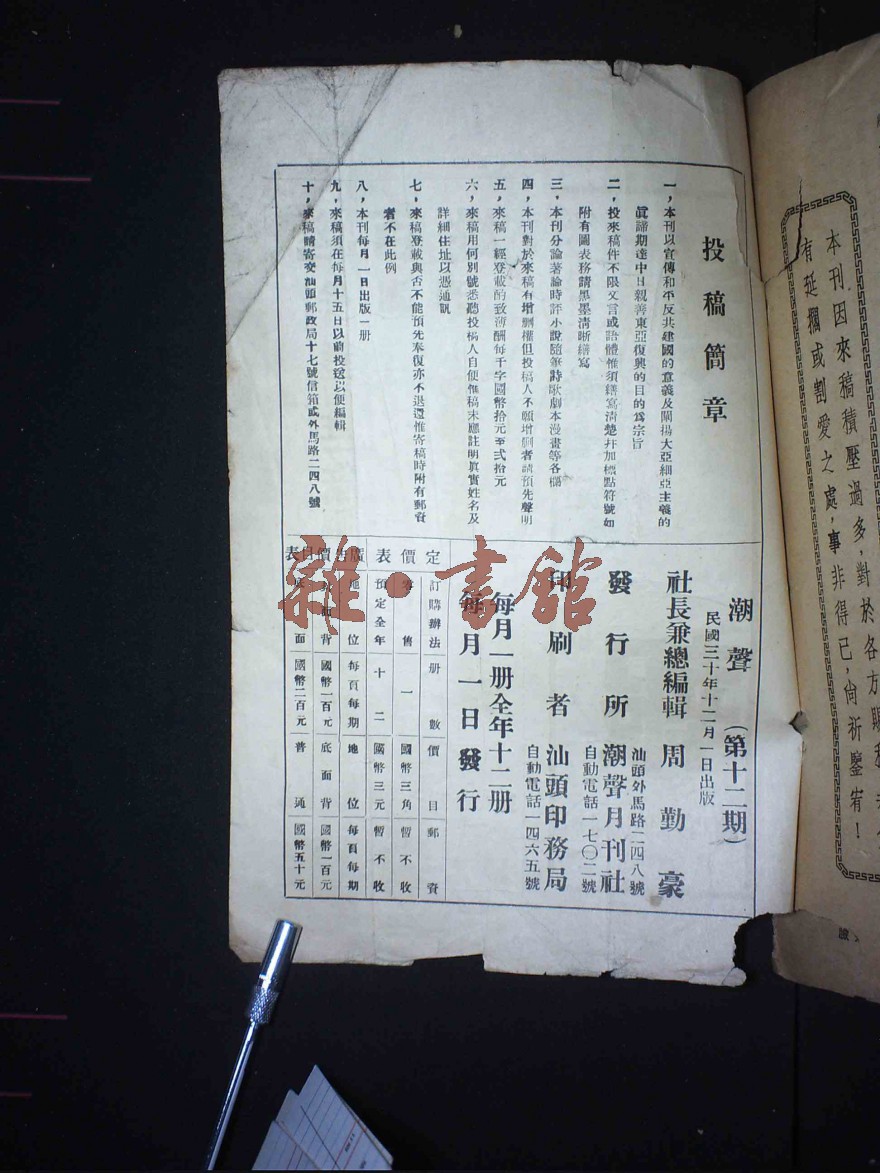 本刊因來稿積壓過多，對於各方賜稿
有延擱或割愛之處，事非得已，尙祈鑒宥！
投稿簡章
一，本刊以宣傳和平反共建國的意義及闡揚大亞細亞主義的
眞諦期達中日親善東亞復興的目的爲宗旨
二，投來稿件不限文言或語體惟須繕寫淸楚幷加標點符號如
附有圖表務請黑墨淸晰繕寫
三，本刊分論著論時評小說隨筆詩歌劇本漫畫等各欄
四，本刊對於來稿有增删權但投稿人不願增删者請預先聲明
五，來稿一經登載酌致薄酬每千字國幣拾元至弍拾元
六，來稿用何別號悉聽投稿人自便惟稿末應註明眞實姓名及
詳細住址以憑通訊
七，來稿登載與否不能預先奉復亦不退還惟寄稿時附有郵資
者不在此例
八，本刊每月一日出版一册
九，來稿須在每月十五日以前投送以便編輯
十，來稿請寄交汕頭郵政局十七號信箱或外馬路二四八號
潮聲（第十二期）
民國三十年十二月一日出版
社長兼總編輯 周勤豪
汕頭外馬路二四八號
發行所 潮聲月刊社
自動電話一七〇二號
印刷者 汕頭印務局
自動電話一四六五號
每月一册全年十二册
每月一日發行
定價表
訂購辦法 册數 價目 郵資
零售 一 國幣三角 暫不收
預定全年 十二 國幣三元 暫不收
廣告價目表
地位 每頁每期 地位 每頁每期
面背 國幣一百元 底面背 國幣一百元
底面 國幣二百元 普通 國幣五十元
雜·書館